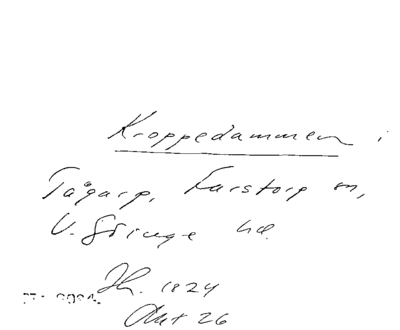 Kroppedammen i
Tågarp, Farstorp sn,
V. Göinge hd.
Lh. 1824
Akt 26